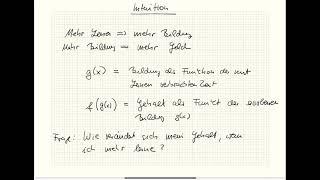 Intuition
Mehr Lernen => mehr Bildung
Mehr Bildung => mehr Geld
g(x) = Bildung als Funktion der mit
Lernen verbrachten Zeit
f(g(x)) = Gehalt als Funkt der
Bildung g(x)
Frage: Wie verändert sich mein Gehalt, wenn
ich mehr lerne?